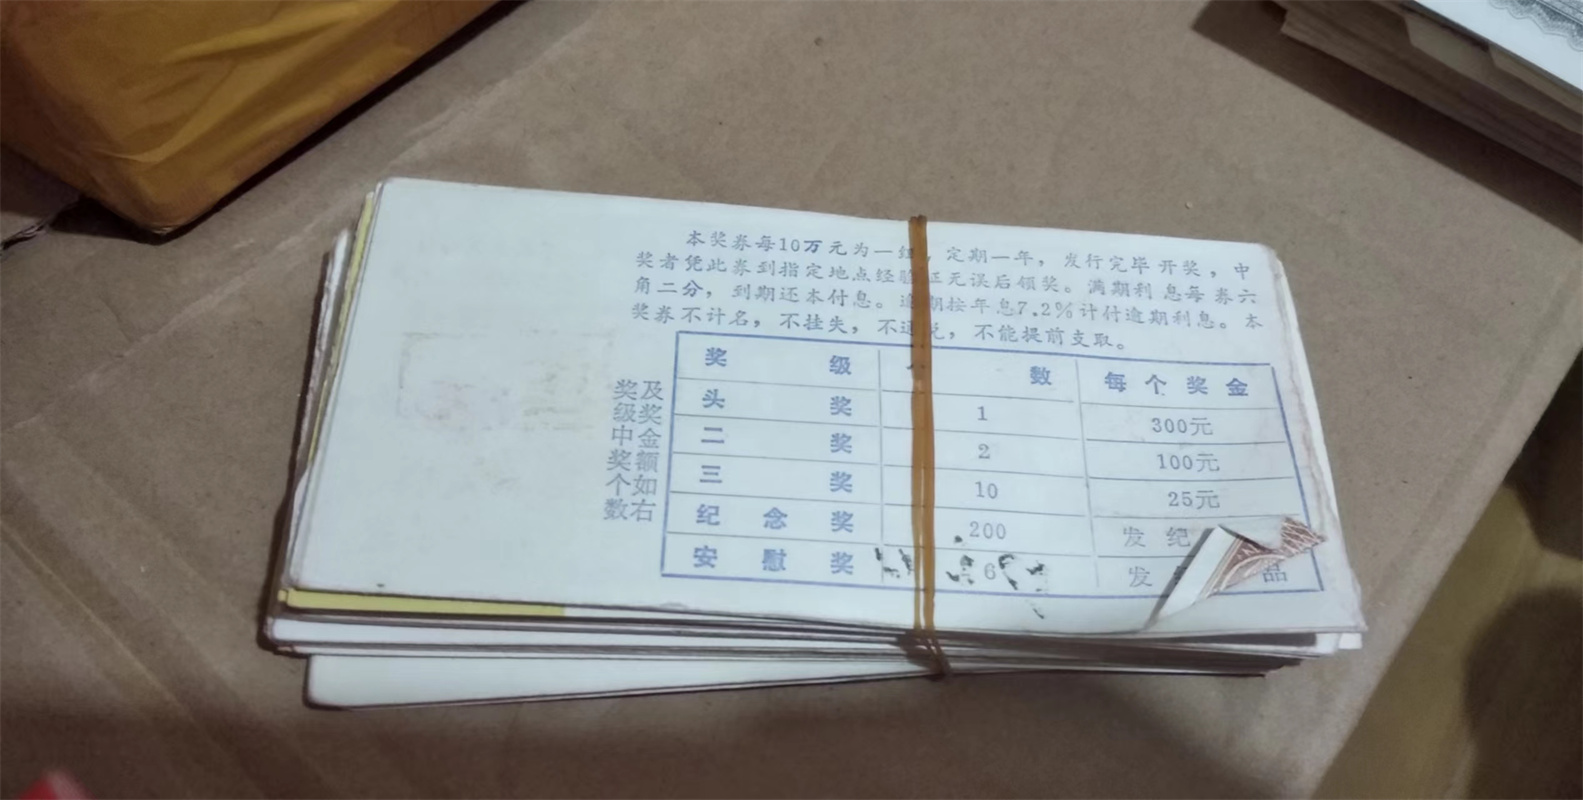 本奖券每10万元为一组，定期一年，发行完毕开奖，中
奖者凭此券到指定地点经验证无误后领奖。满期利息每券六
角二分，到期还本付息。逾期按年息7.2%计付逾期利息。本
奖券不计名，不挂失，不通兑，不能提前支取。
奖级中奖个数
及奖金额如右
奖 级 数 每个奖金
头 奖 1 300元
二 奖 2 100元
三 奖 10 25元
纪念奖 200 发纪
安慰奖 6 发 品